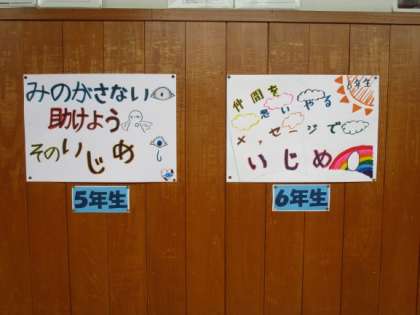 みのがさない
助けよう
そのいじめ
5年生
6年生
仲間を
思いやる
メッセージで
いじめ
6年生